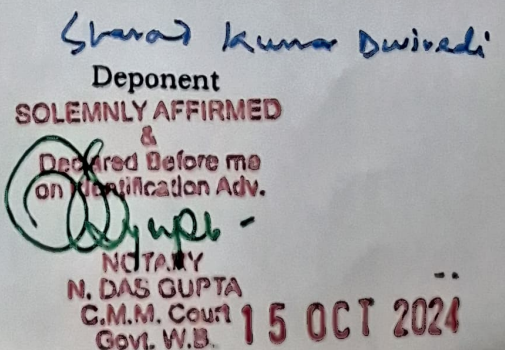 Sharad Kumar Dwivedi
Deponent
SOLEMNLY AFFIRMED
&
Declared Before me
on Identification Adv.
NOTARY
N. DAS GUPTA
C.M.M. Court
Govt. W.B.
15 OCT 2024